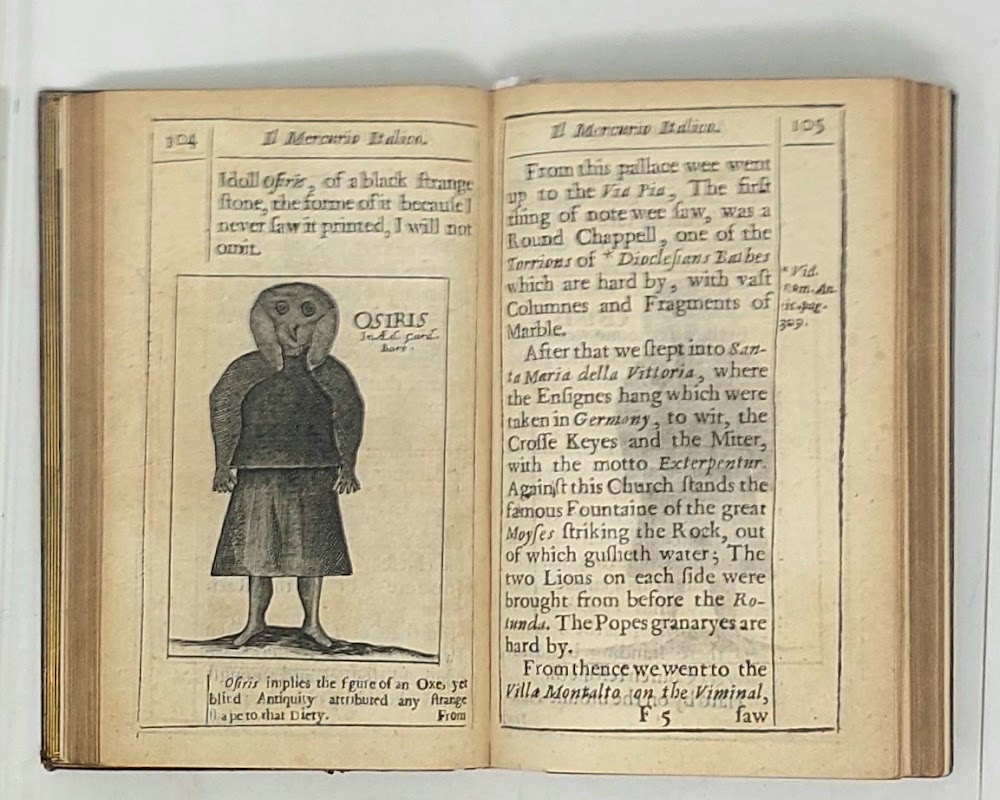 104
Il Mercurio Italico.
Idoll Osiris, of a black strange
stone, the forme of it because I
never saw it printed, I will not
omit.
OSIRIS
In Æd. Card.
Barb.
Osiris implies the fgure of an Oxe, yet
blind Antiquity attributed any strange
ape to that Diety.
From
Il Mercurio Italico.
105
From this pallace wee went
up to the Via Pia, The first
thing of note wee saw, was a
Round Chappell, one of the
Torrions of * Dioclesians Bathes
which are hard by, with vast
Columnes and Fragments of
Marble.
* Vid.
Rom. An-
tic. pag.
309.
After that we stept into San-
ta Maria della Vittoria, where
the Ensignes hang which were
taken in Germony, to wit, the
Crosse Keyes and the Miter,
with the motto Exterpentur.
Against this Church stands the
famous Fountaine of the great
Moyses striking the Rock, out
of which gusheth water; The
two Lions on each side were
brought from before the Ro-
tunda. The Popes granaryes are
hard by.
From thence we went to the
Villa Montalto on the Viminal,
F 5
saw